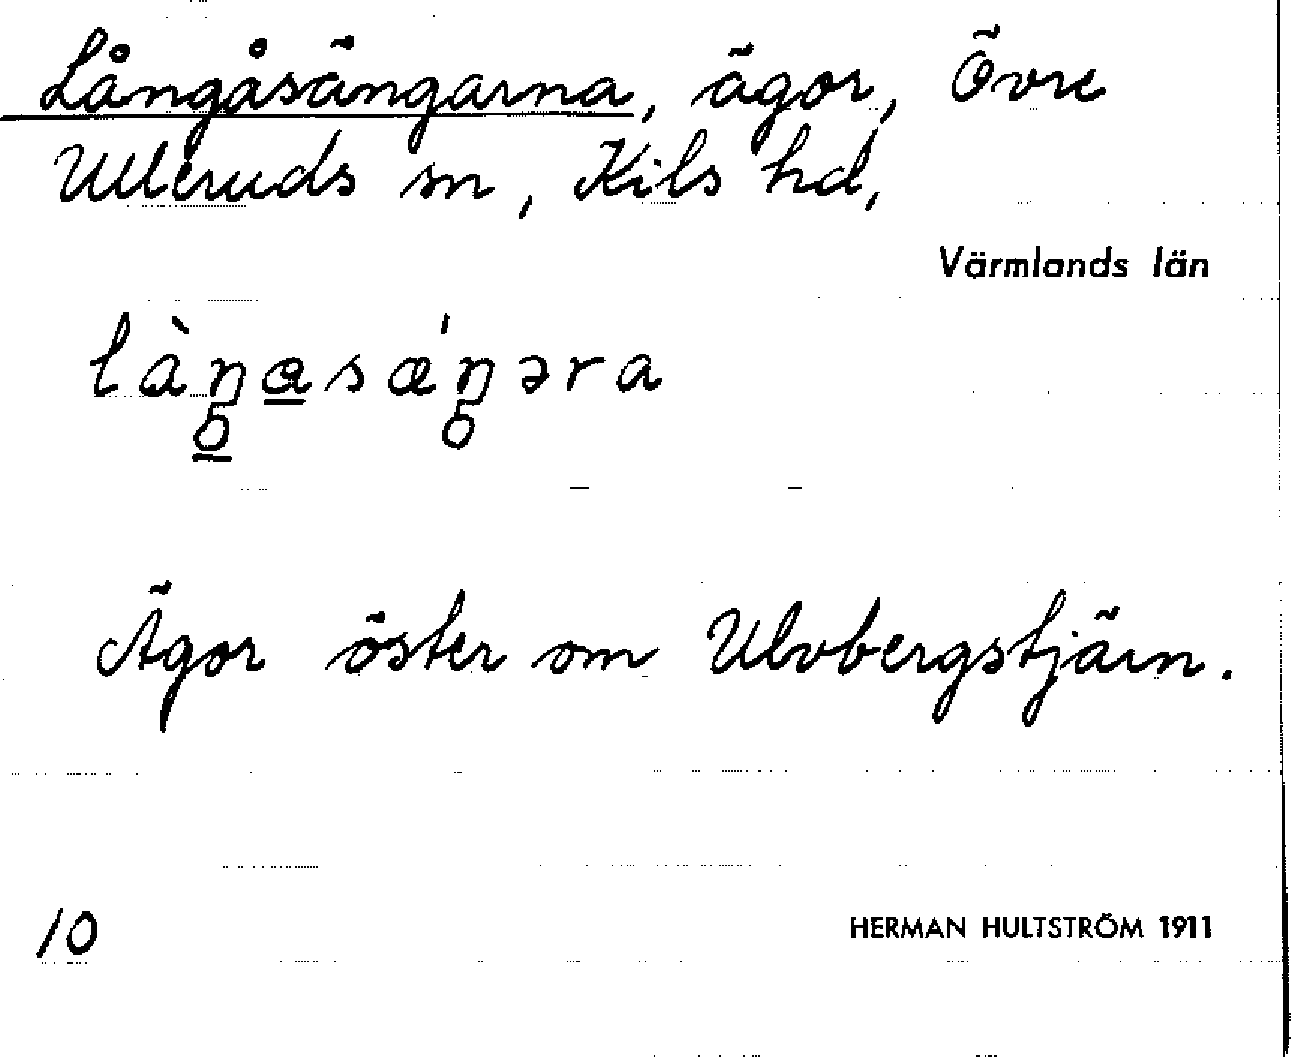 Långåsängarna, ägor, Övre
Ulleruds sn, Kils hd,
Värmlands län
làŋasǽŋəra
Ägor öster om Ulvbergstjärn.
10
HERMAN HULTSTRÖM 1911